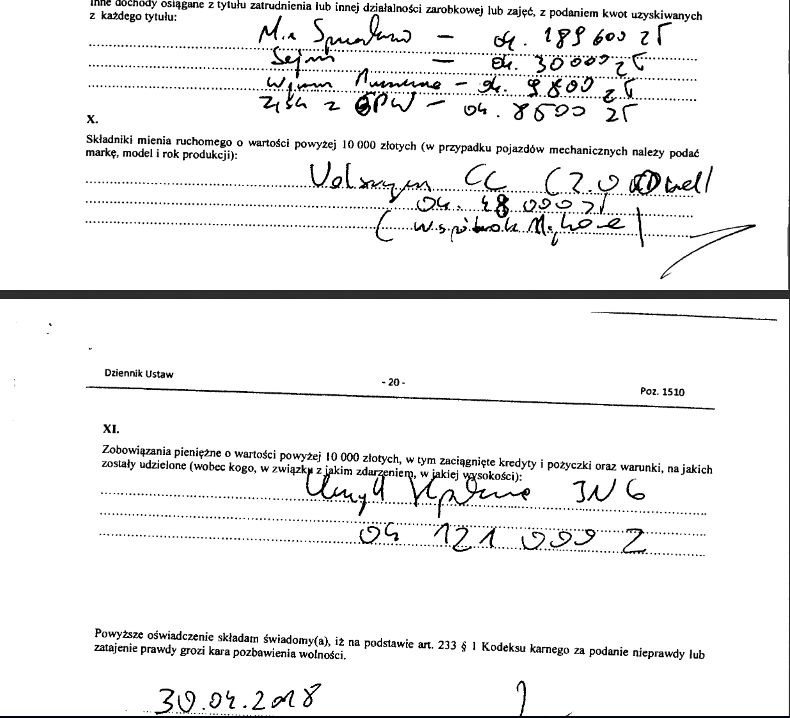 Inne dochody osiągane z tytułu zatrudnienia lub innej działalności zarobkowej lub zajęć, z podaniem kwot uzyskiwanych
z każdego tytułu:
— ok. 189 600 zł
Sejm — ok. 30000 zł
— ok. 9800 zł
Zysk z GPW — ok. 8500 zł
X.
Składniki mienia ruchomego o wartości powyżej 10 000 złotych (w przypadku pojazdów mechanicznych należy podać
markę, model i rok produkcji):
CC (2.0
ok. 48 000 zł
(współwł.
Dziennik Ustaw
- 20 -
Poz. 1510
XI.
Zobowiązania pieniężne o wartości powyżej 10 000 złotych, w tym zaciągnięte kredyty i pożyczki oraz warunki, na jakich
zostały udzielone (wobec kogo, w związku z jakim zdarzeniem, w jakiej wysokości):
ING
ok 121 000 z
Powyższe oświadczenie składam świadomy(a), iż na podstawie art. 233 § 1 Kodeksu karnego za podanie nieprawdy lub
zatajenie prawdy grozi kara pozbawienia wolności.
30.04.2018